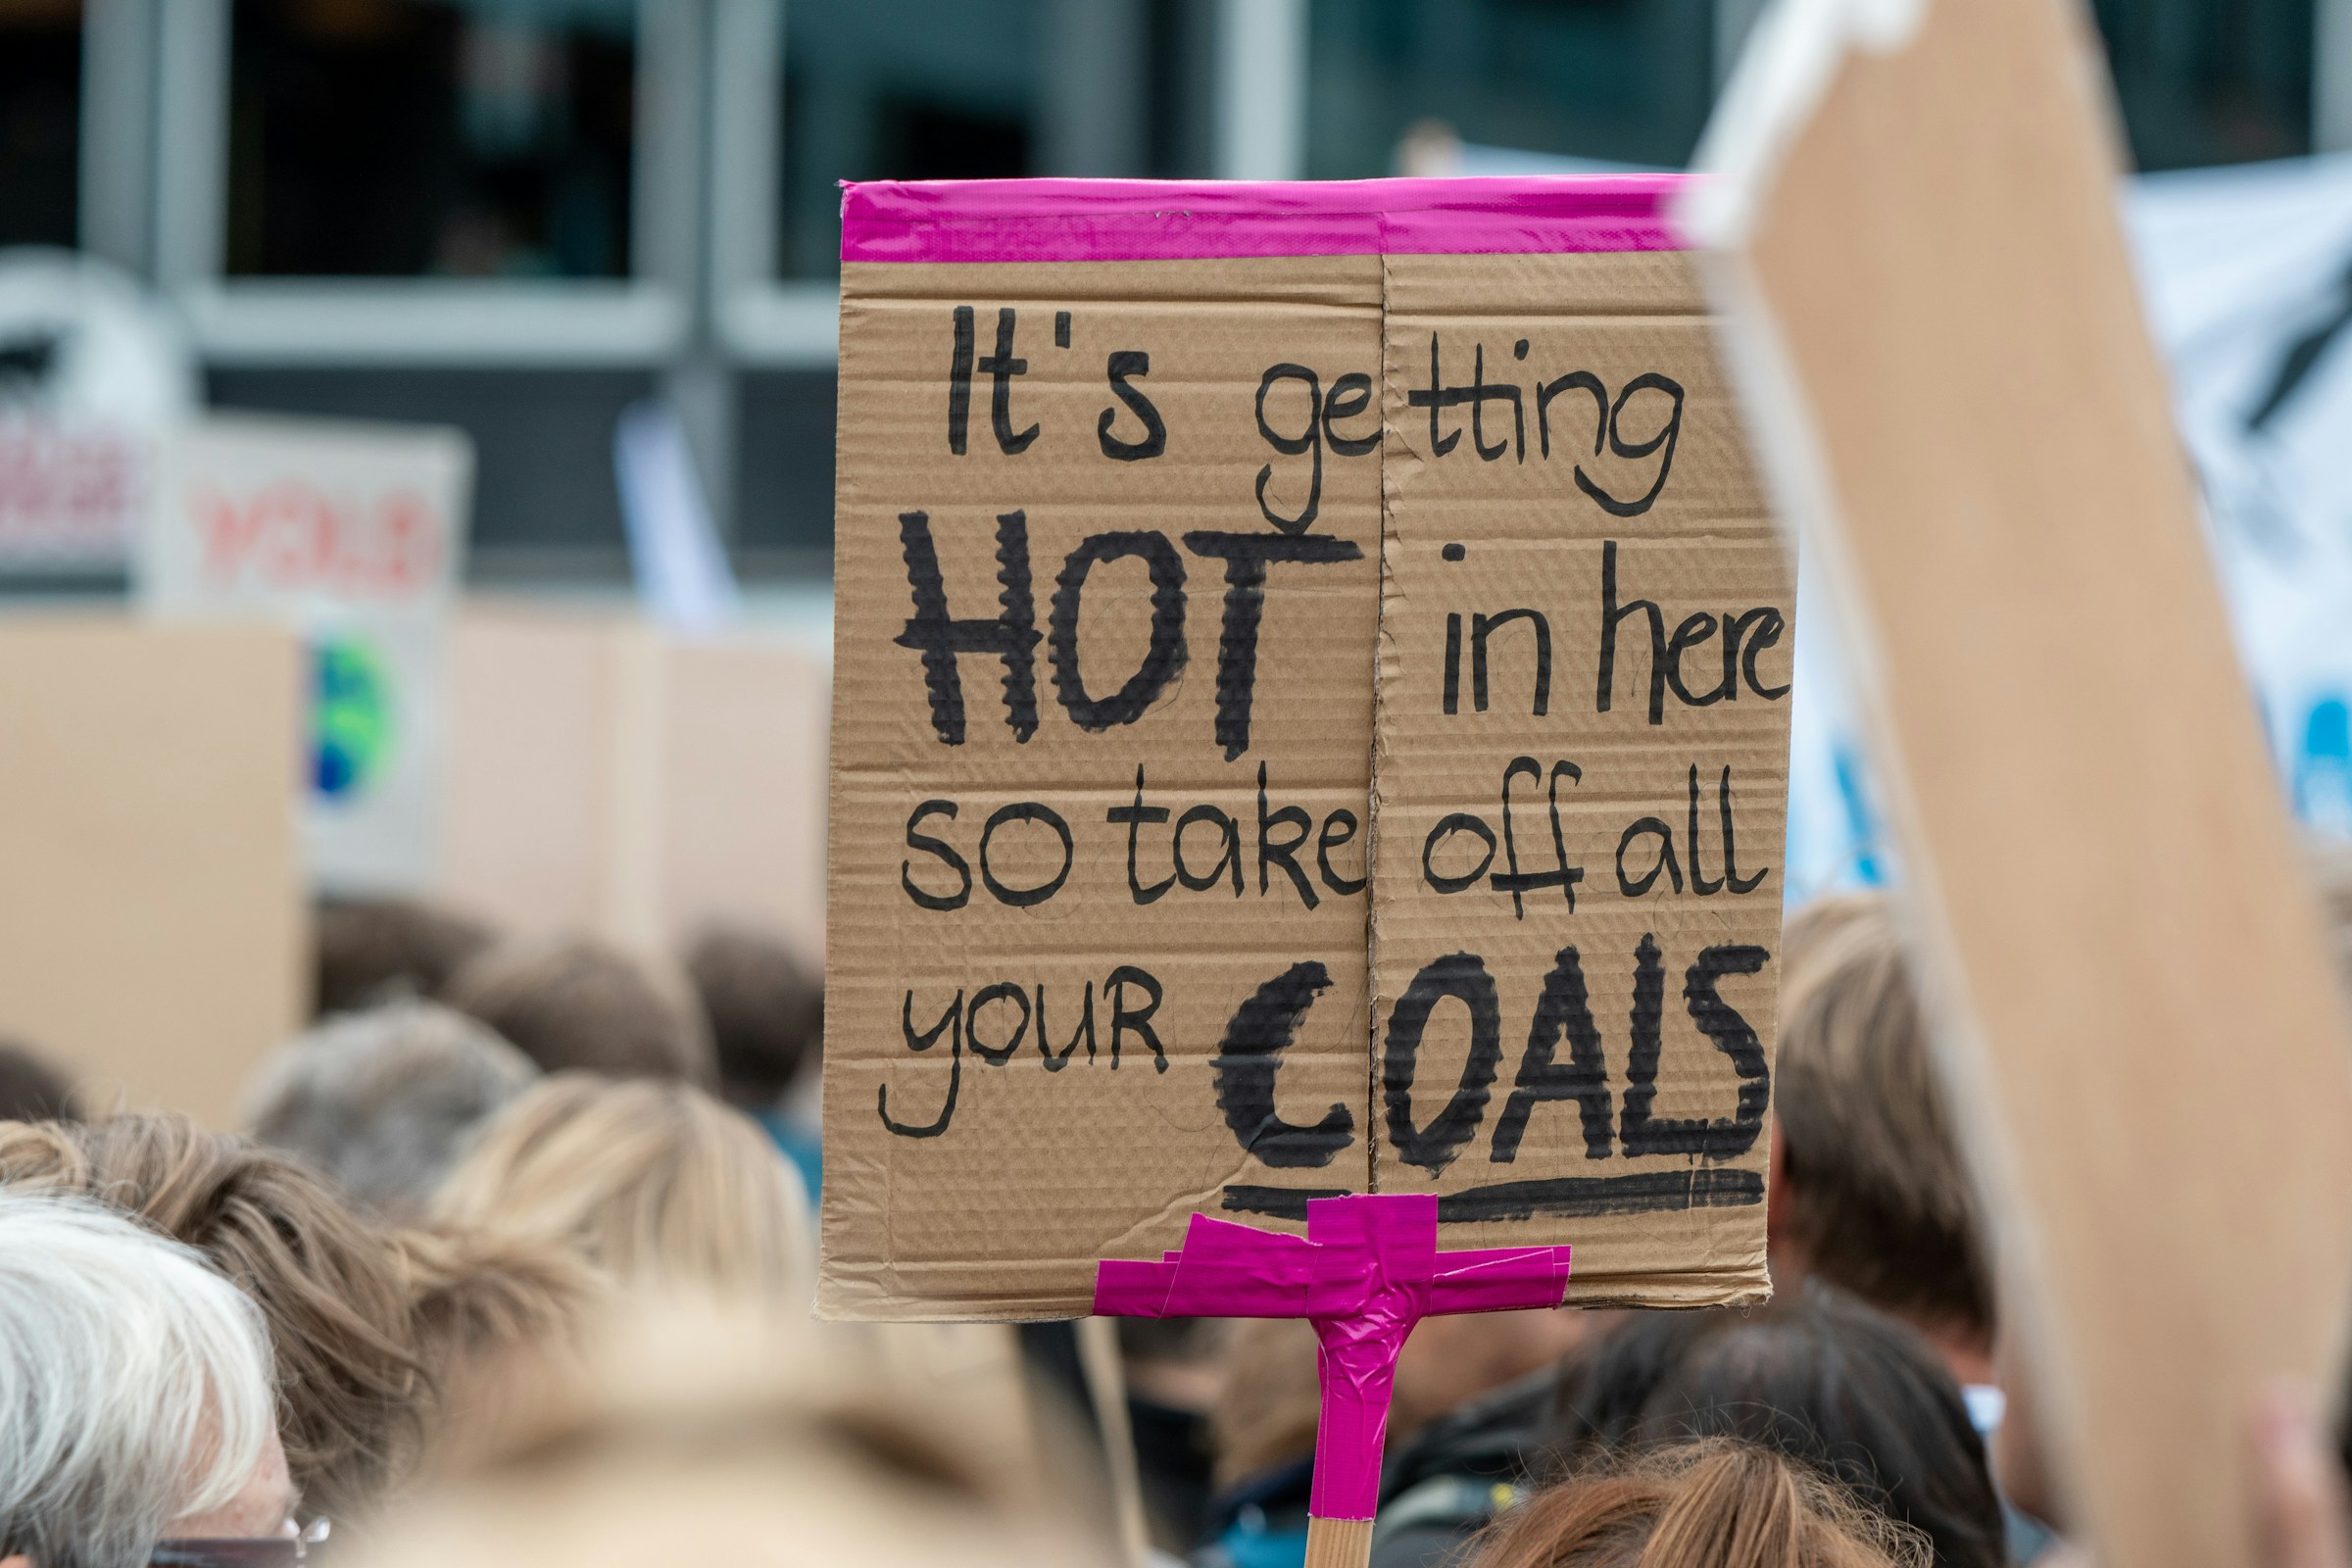 It's getting
HOT in here
so take off all
youR COALS